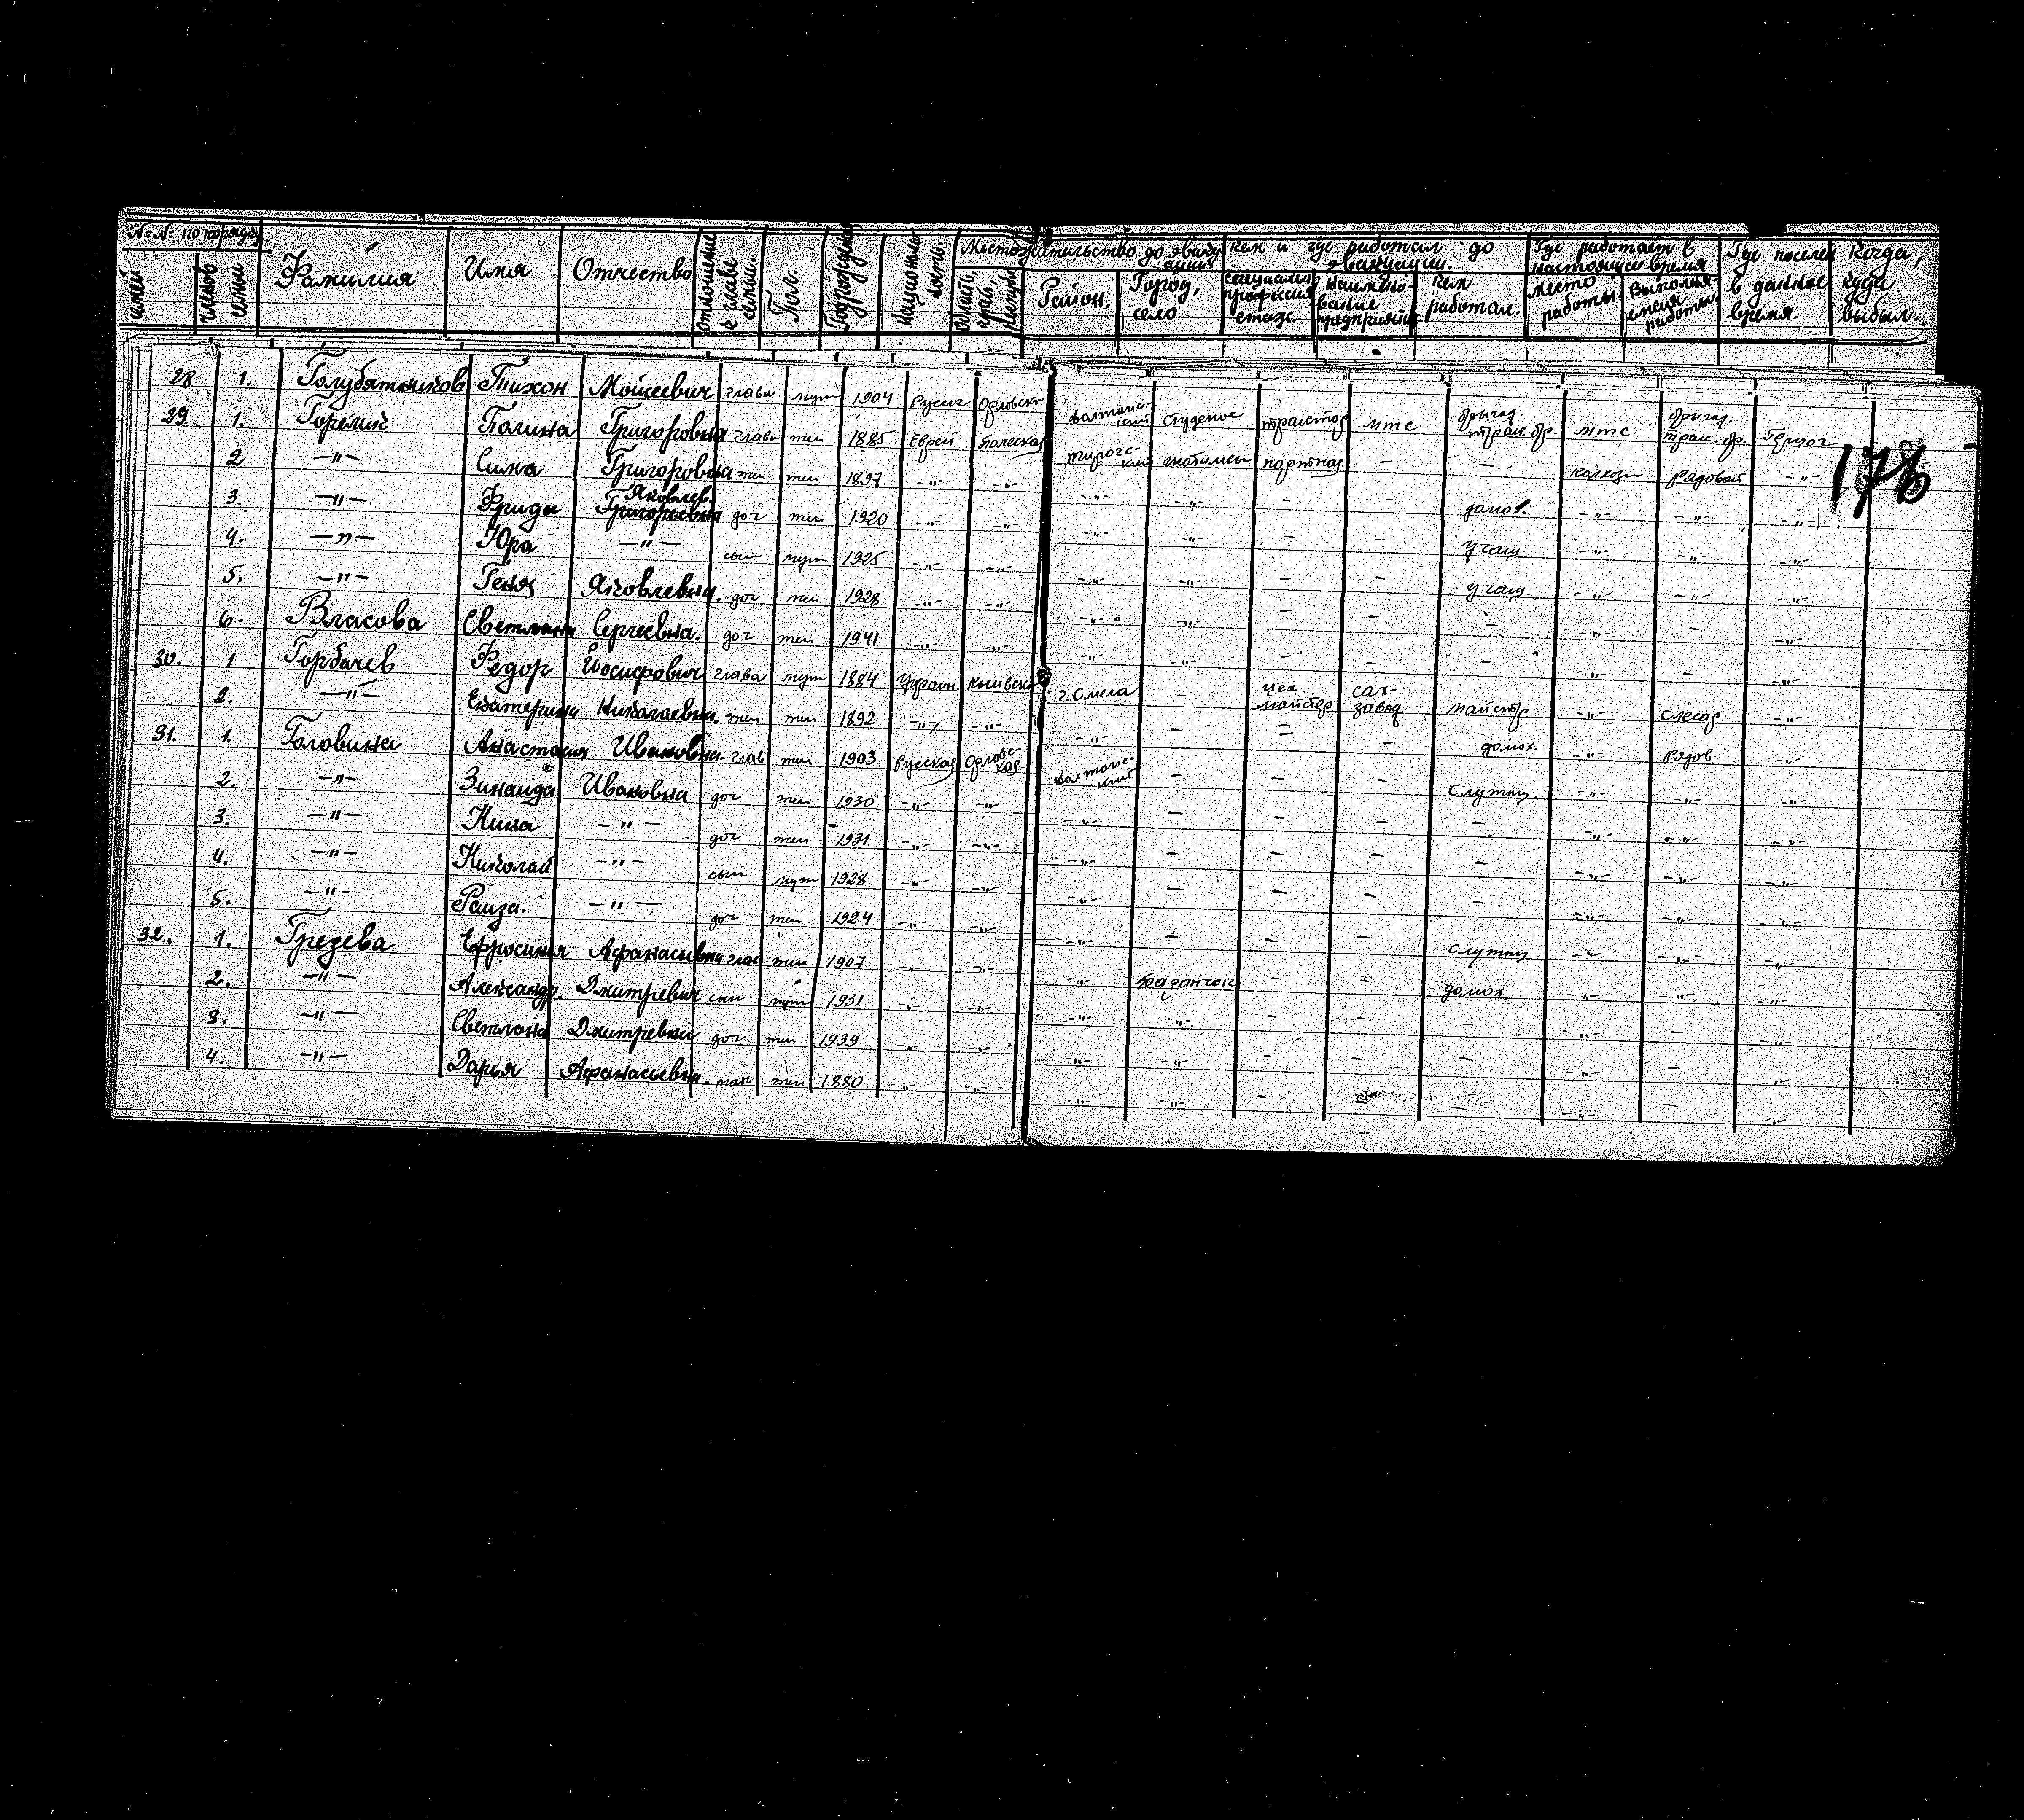 №-№ по порядку
семей
членов семьи
Фамилия
Имя
Отчество
Отношение к главе семьи.
Пол.
Год рождения
Националь-ность
Местожительство до эвакуации
Область, край,
Район.
Город, село
Кем и где работал до эвакуации.
специальн. профессия стаж.
Наимено-вание предприятия
Кем работал.
Где работает в настоящее время
место работы.
Выполня-емая работа.
Где поселен в данное время.
Когда, куда выбыл.
28 1. Голубятников Тихон Мойсеевич глава муж 1904 Русск Орловск студеное трактор МТС бригад. трак. бр. МТС бригад. трак. бр.
29. 1. Горелик Полина Григоровна глава жен 1885 Еврей Полеская портной - - колхоз рядовой -"-
2 -"- Григоровна жен жен 1897 -"- -"- -"- -"- - - домох. -"- -"- -"-
3. -"- Фрида Яковлев. Григорьевна доч жен 1920 -"- -"- -"- -"- - - учащ. -"- -"- -"-
4. -"- Юра -"- сын муж 1925 -"- -"- -"- -"- - - учащ. -"- -"- -"-
5. -"- Геня Яковлевна. доч жен 1928 -"- -"- -"- -"- - - - -"- - -"-
6. Власова Светлана Сергеевна. доч жен 1941 -"- -"- -"- -"- - - - -"- - -"-
30. 1 Горбачев Федор Йосифович глава муж 1884 Украин. Киивска г. Смела - цех. майстер сах-завод майстр -"- слесар -"-
2. -"- Екатерина Николаевна. жен жен 1892 -"- -"- -"- - - - домох. -"- рядов -"-
31. 1. Головина Анастасия Ивановна. глав жен 1903 Русская Орловс-кая - - - служащ. -"- -"- -"-
2. -"- Зинаида Ивановна доч жен 1930 -"- -"- -"- - - - - -"- -"- -"-
3. -"- Нина -"- доч жен 1931 -"- -"- -"- - - - - -"- -"- -"-
4. -"- Николай -"- сын муж 1928 -"- -"- -"- - - - - -"- -"- -"-
5. -"- Раиза. -"- доч жен 1924 -"- -"- -"- - - - служащ -"- -"- -"-
32. 1. Грезева Ефросиния Афанасьевна глав жен 1907 -"- -"- -"- - - домох -"- -"- -"-
2. -"- Александр. Дмитревич сын муж 1931 -"- -"- -"- -"- - - - -"- - -"-
3. -"- Светлана Дмитревна доч жен 1939 -"- -"- -"- -"- - - - -"- - -"-
4. -"- Дарья Афанасьевна. мать жен 1880 -"- -"- -"- -"- - - -"- - -"-